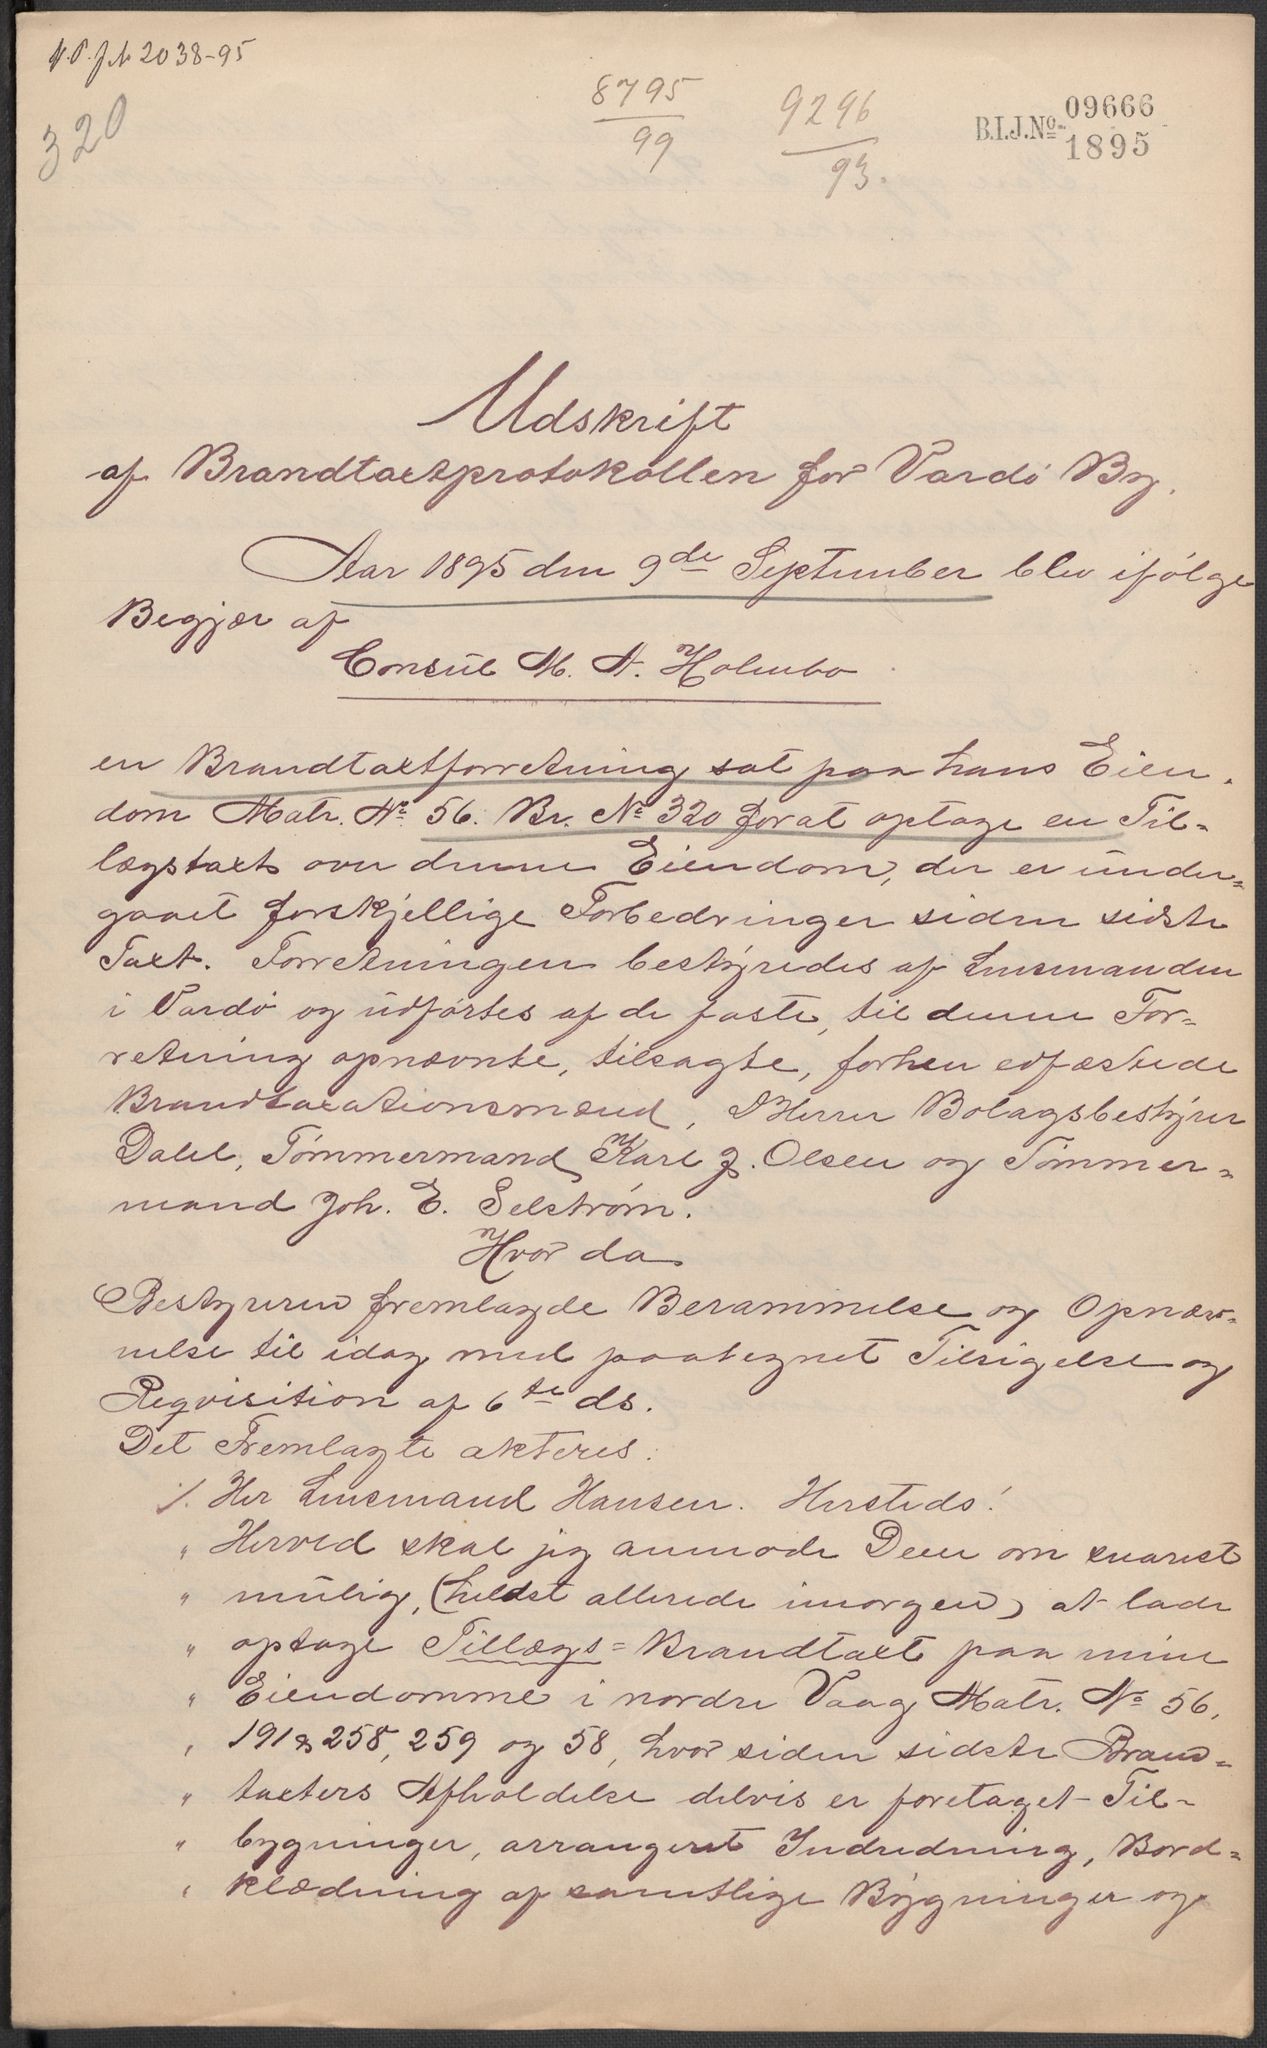 V.P.J.N 2038-95
320
8795
99
9296
93.
B.I.J.No. 09666
1895
Udskrift
af Brandtaxtprotokollen for Vardö By.
Aar 1895 den 9de September blev ifölge
Begjær af
Consul M. A. Holmbo
en Brandtaxtforretning sat paa hans Eien-
dom Matr. No 56. Br. No 320 for at optage en Til-
lægstaxt over denne Eiendom, der er under-
gaaet forskjellige Forbedringer siden sidste
Taxt. Forretningen bestyredes af Lensmanden
i Vardö og udførtes af de faste, til denne For-
retning opnævnte, tilsagte, forhen edfæstede
Brandtaxationsmænd, DHerrer Bolagsbestyrer
Dahl, Tömmermand Karl J. Olsen og Tömmer-
mand Joh. E. Selström.
Hvor da
Bestyreren fremlagde Berammelse og Opnæv-
nelse til idag med paategnet Tilsigelse og
Reqvisition af 6te ds.
Det Fremlagte akteres:
./. Hr Lensmand Hansen. Hersteds!
" Herved skal jeg anmode Dem om snarest
" mulig, (heldst allerede imorgen) at lade
" optage Tillægs-Brandtaxt paa mine
" Eiendomme i nordre Vaag Matr. No 56,
" 191 & 258, 259 og 58, hvor siden sidste Brand-
" taxters Afholdelse delvis er foretaget Til-
" bygninger, arrangeret Indredning, Bord-
" klædning af samtlige Bygninger og